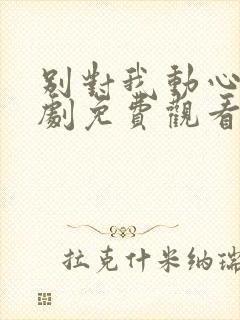 別對我動心
劇免費觀看
拉克什米納瑞